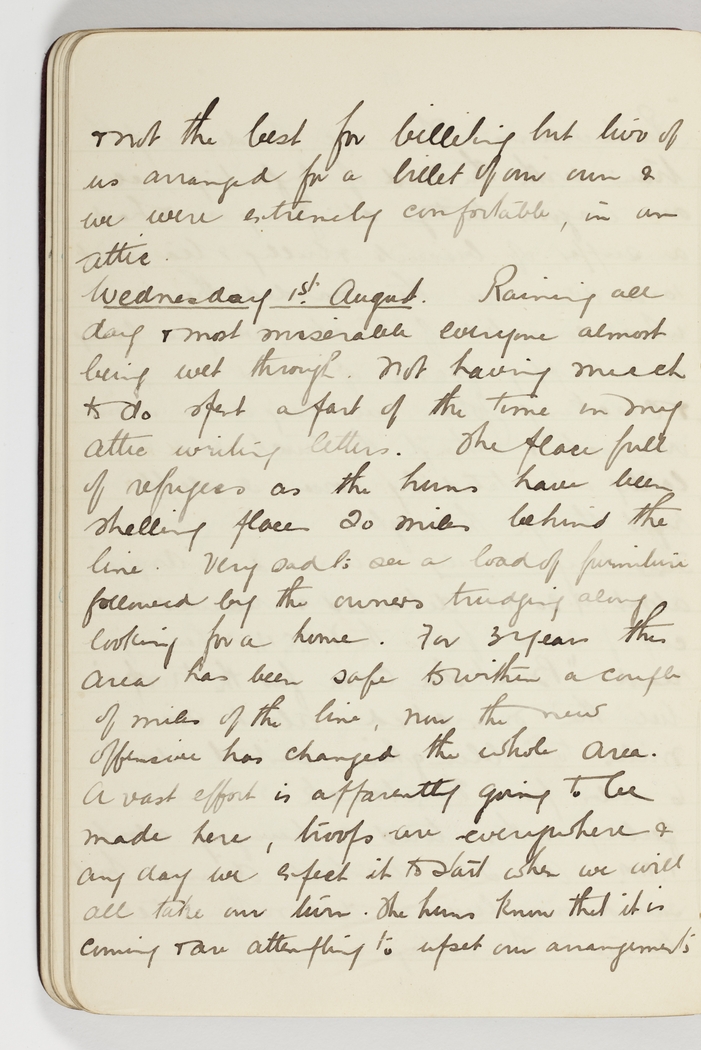 & not the best for billeting but two of
us arranged for a billet of our own &
we were extremely comfortable, in an
attic.
Wednesday 1st. August. Raining all
day & most miserable everyone almost
being wet through. Not having much
to do spent a part of the time in my
attic writing letters. The place full
of refugees as the huns have been
shelling places 20 miles behind the
line. Very sad to see a load of furniture
followed by the owners trudging along
looking for a home. For 3 years this
area has been safe to within a couple
of miles of the line, now the new
offensive has changed the whole area.
A vast effort is apparently going to be
made here, troops are everywhere &
any day we expect it to start when we will
all take our turn. The huns know that it is
coming & are attempting to upset our arrangements